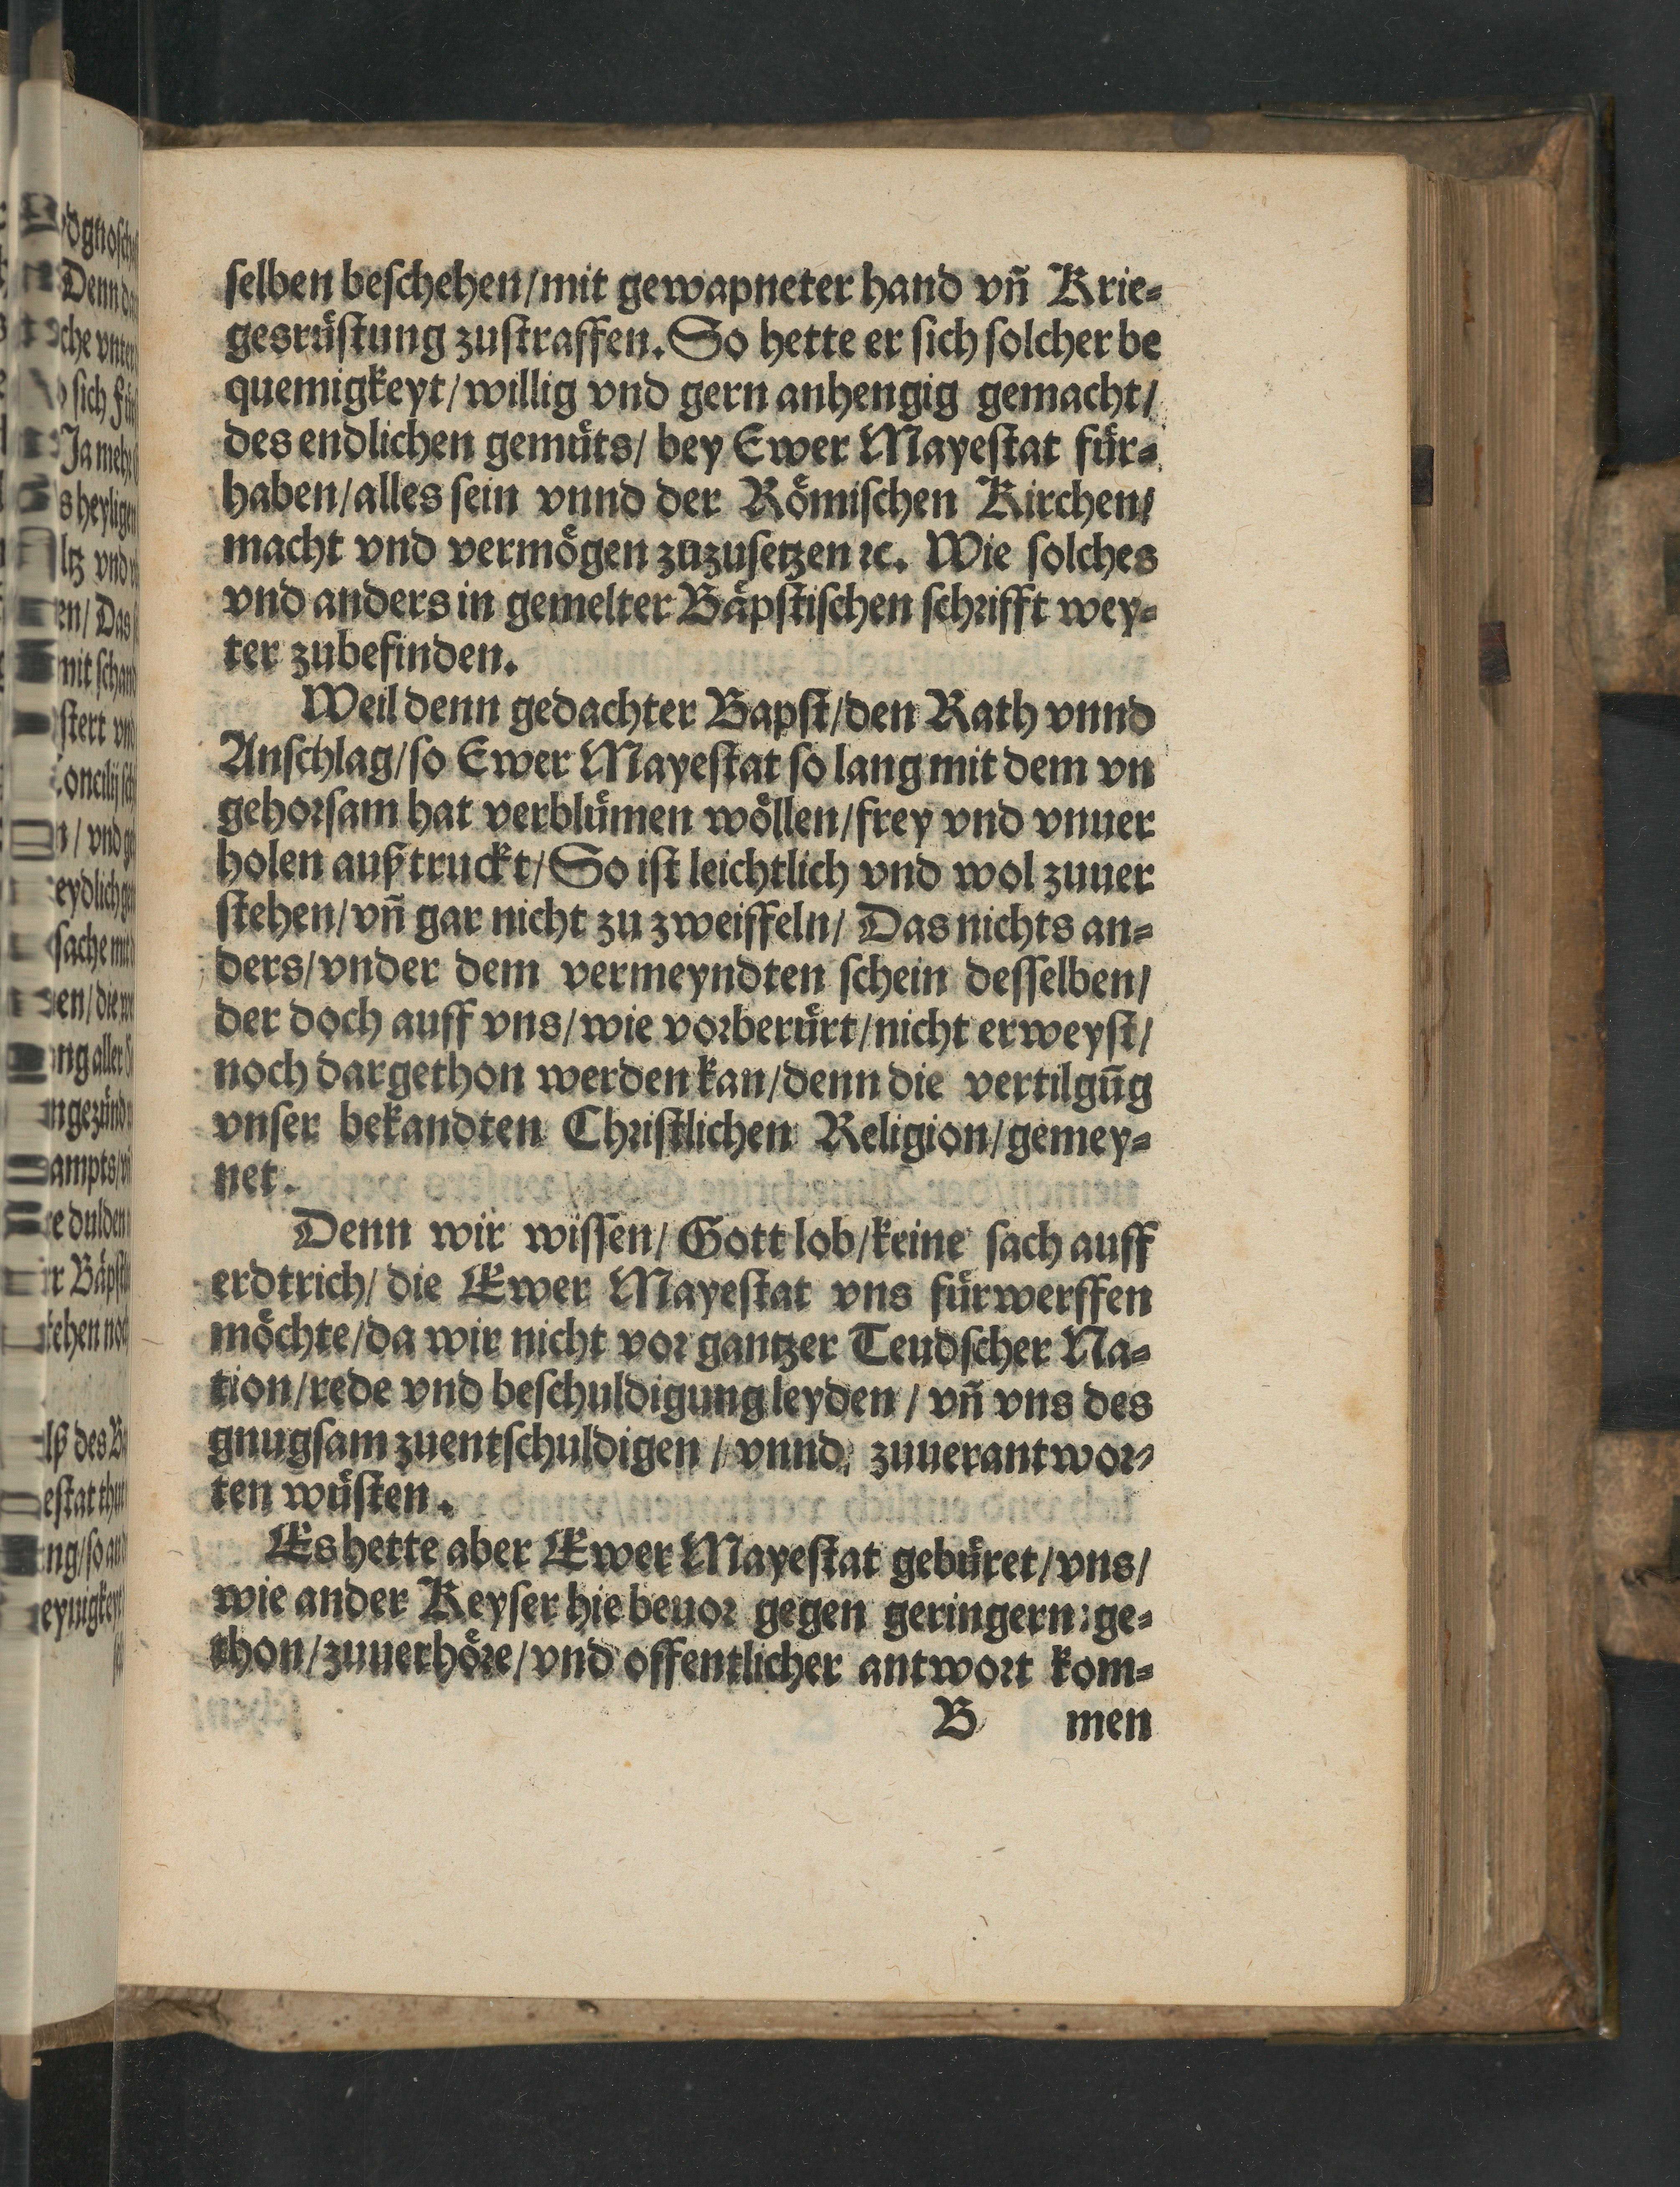 selben beschehen/mit gewapneter hand vñ Krie-
gesrüstung zustraffen. So hette er sich solcher be
quemigkeyt/willig vnd gern anhengig gemacht/
des endlichen gemüts/ bey Ewer Mayestat für-
haben/alles sein vnnd der Römischen Kirchen/
macht vnd vermögen zuzusetzen ꝛc. Wie solches
vnd anders in gemelter Bäpstischen schrifft wey-
ter zubefinden.
Weil denn gedachter Bapst/den Rath vnnd
Anschlag/so Ewer Mayestat so lang mit dem vn
gehorsam hat verblümen wöllen/frey vnd vnuer
holen außtruckt/So ist leichtlich vnd wol zuuer
stehen/vñ gar nicht zu zweiffeln/ Das nichts an-
ders/vnder dem vermeyndten schein desselben/
der doch auff vns/wie vorberürt/nicht erweyst/
noch dargethon werden kan/denn die vertilgūg
vnser bekandten Christlichen Religion/gemey-
net.
Denn wir wissen/ Gott lob/keine sach auff
erdtrich/ die Ewer Mayestat vns fürwerffen
möchte/da wir nicht vor gantzer Teudscher Na-
tion/rede vnd beschuldigung leyden / vñ vns des
gnugsam zuentschuldigen / vnnd zuuerantwor-
ten wüsten.
Es hette aber Ewer Mayestat gebüret/vns/
wie ander Keyser hie beuor gegen geringern ge-
thon/zuuerhöre/vnd offentlicher antwort kom-
B men